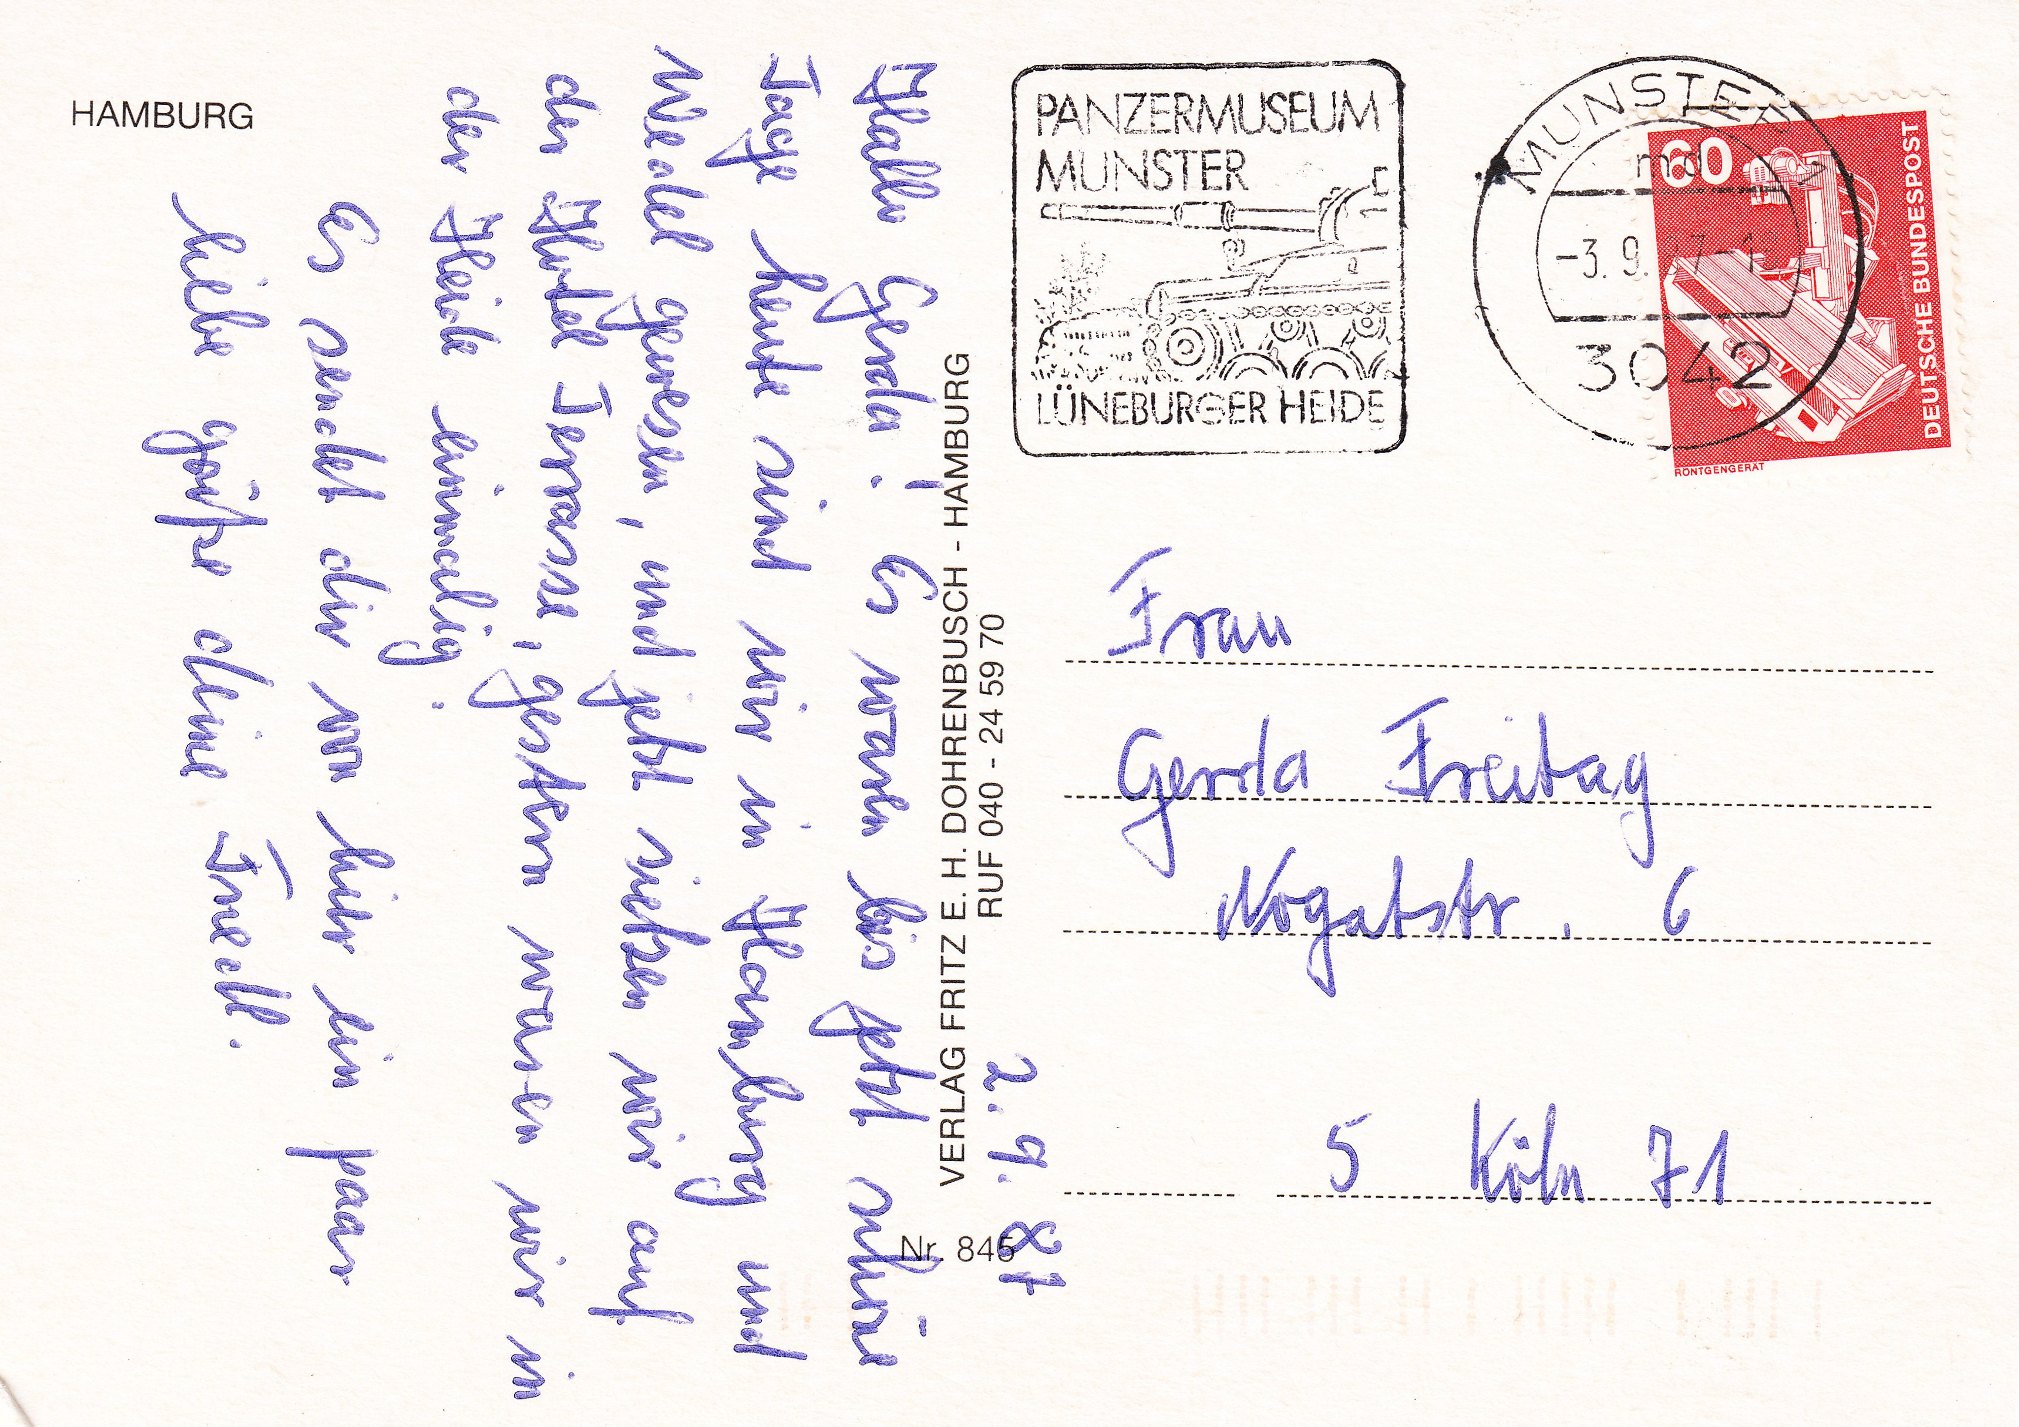 HAMBURG
2.9.87
Hallo Gerda! Es waren bis jetzt schöne
Tage heute sind wir in Hamburg und
Wedel gewesen, und jetzt sietzen wir auf
der Hotel Terasse, gestern waren wir in
der Heide einmalig.
Es sendet dir von hier ein paar
liebe grüße deine Traudl.
VERLAG FRITZ E. H. DOHRENBUSCH - HAMBURG
RUF 040 - 24 59 70
Nr. 845
PANZERMUSEUM
MUNSTER
LÜNEBURGER HEIDE
MUNSTER 1
md
-3.9.87-1
3042
60
DEUTSCHE BUNDESPOST
RÖNTGENGERÄT
Frau
Gerda Freitag
Nogatstr. 6
5 Köln 71